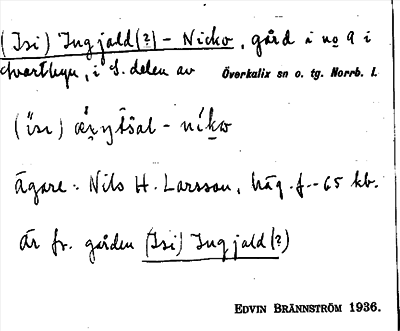 (Isi) Ingjald(?) - Nicko, gård i no 9 i
Svartbyn, i S. delen av Överkalix sn o. tg. Norrb. l.
ägare: Nils H. Larsson, häg. f. 65 kb.
är fr. gården (Isi) Ingjald(?)
EDVIN BRÄNNSTRÖM 1936.